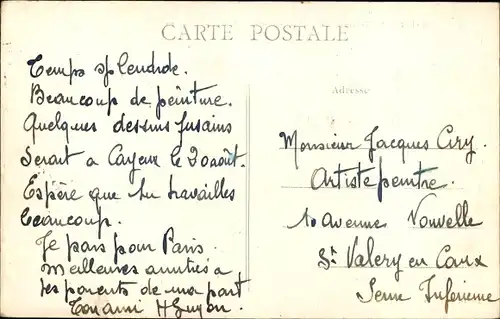 CARTE POSTALE
Adresse
Temps splendide.
Beaucoup de peinture.
Quelques dessins fusains
Serait a Cayeux le 20 août.
Espère que tu travailles
beaucoup.
Je pars pour Paris.
meilleures amitiés a
tes parents de ma part
Ton ami H Guyon.
Monsieur Jacques Ciry.
Artiste peintre.
10 Avenue Nouvelle
St Valery en Caux
Seine Inferieure